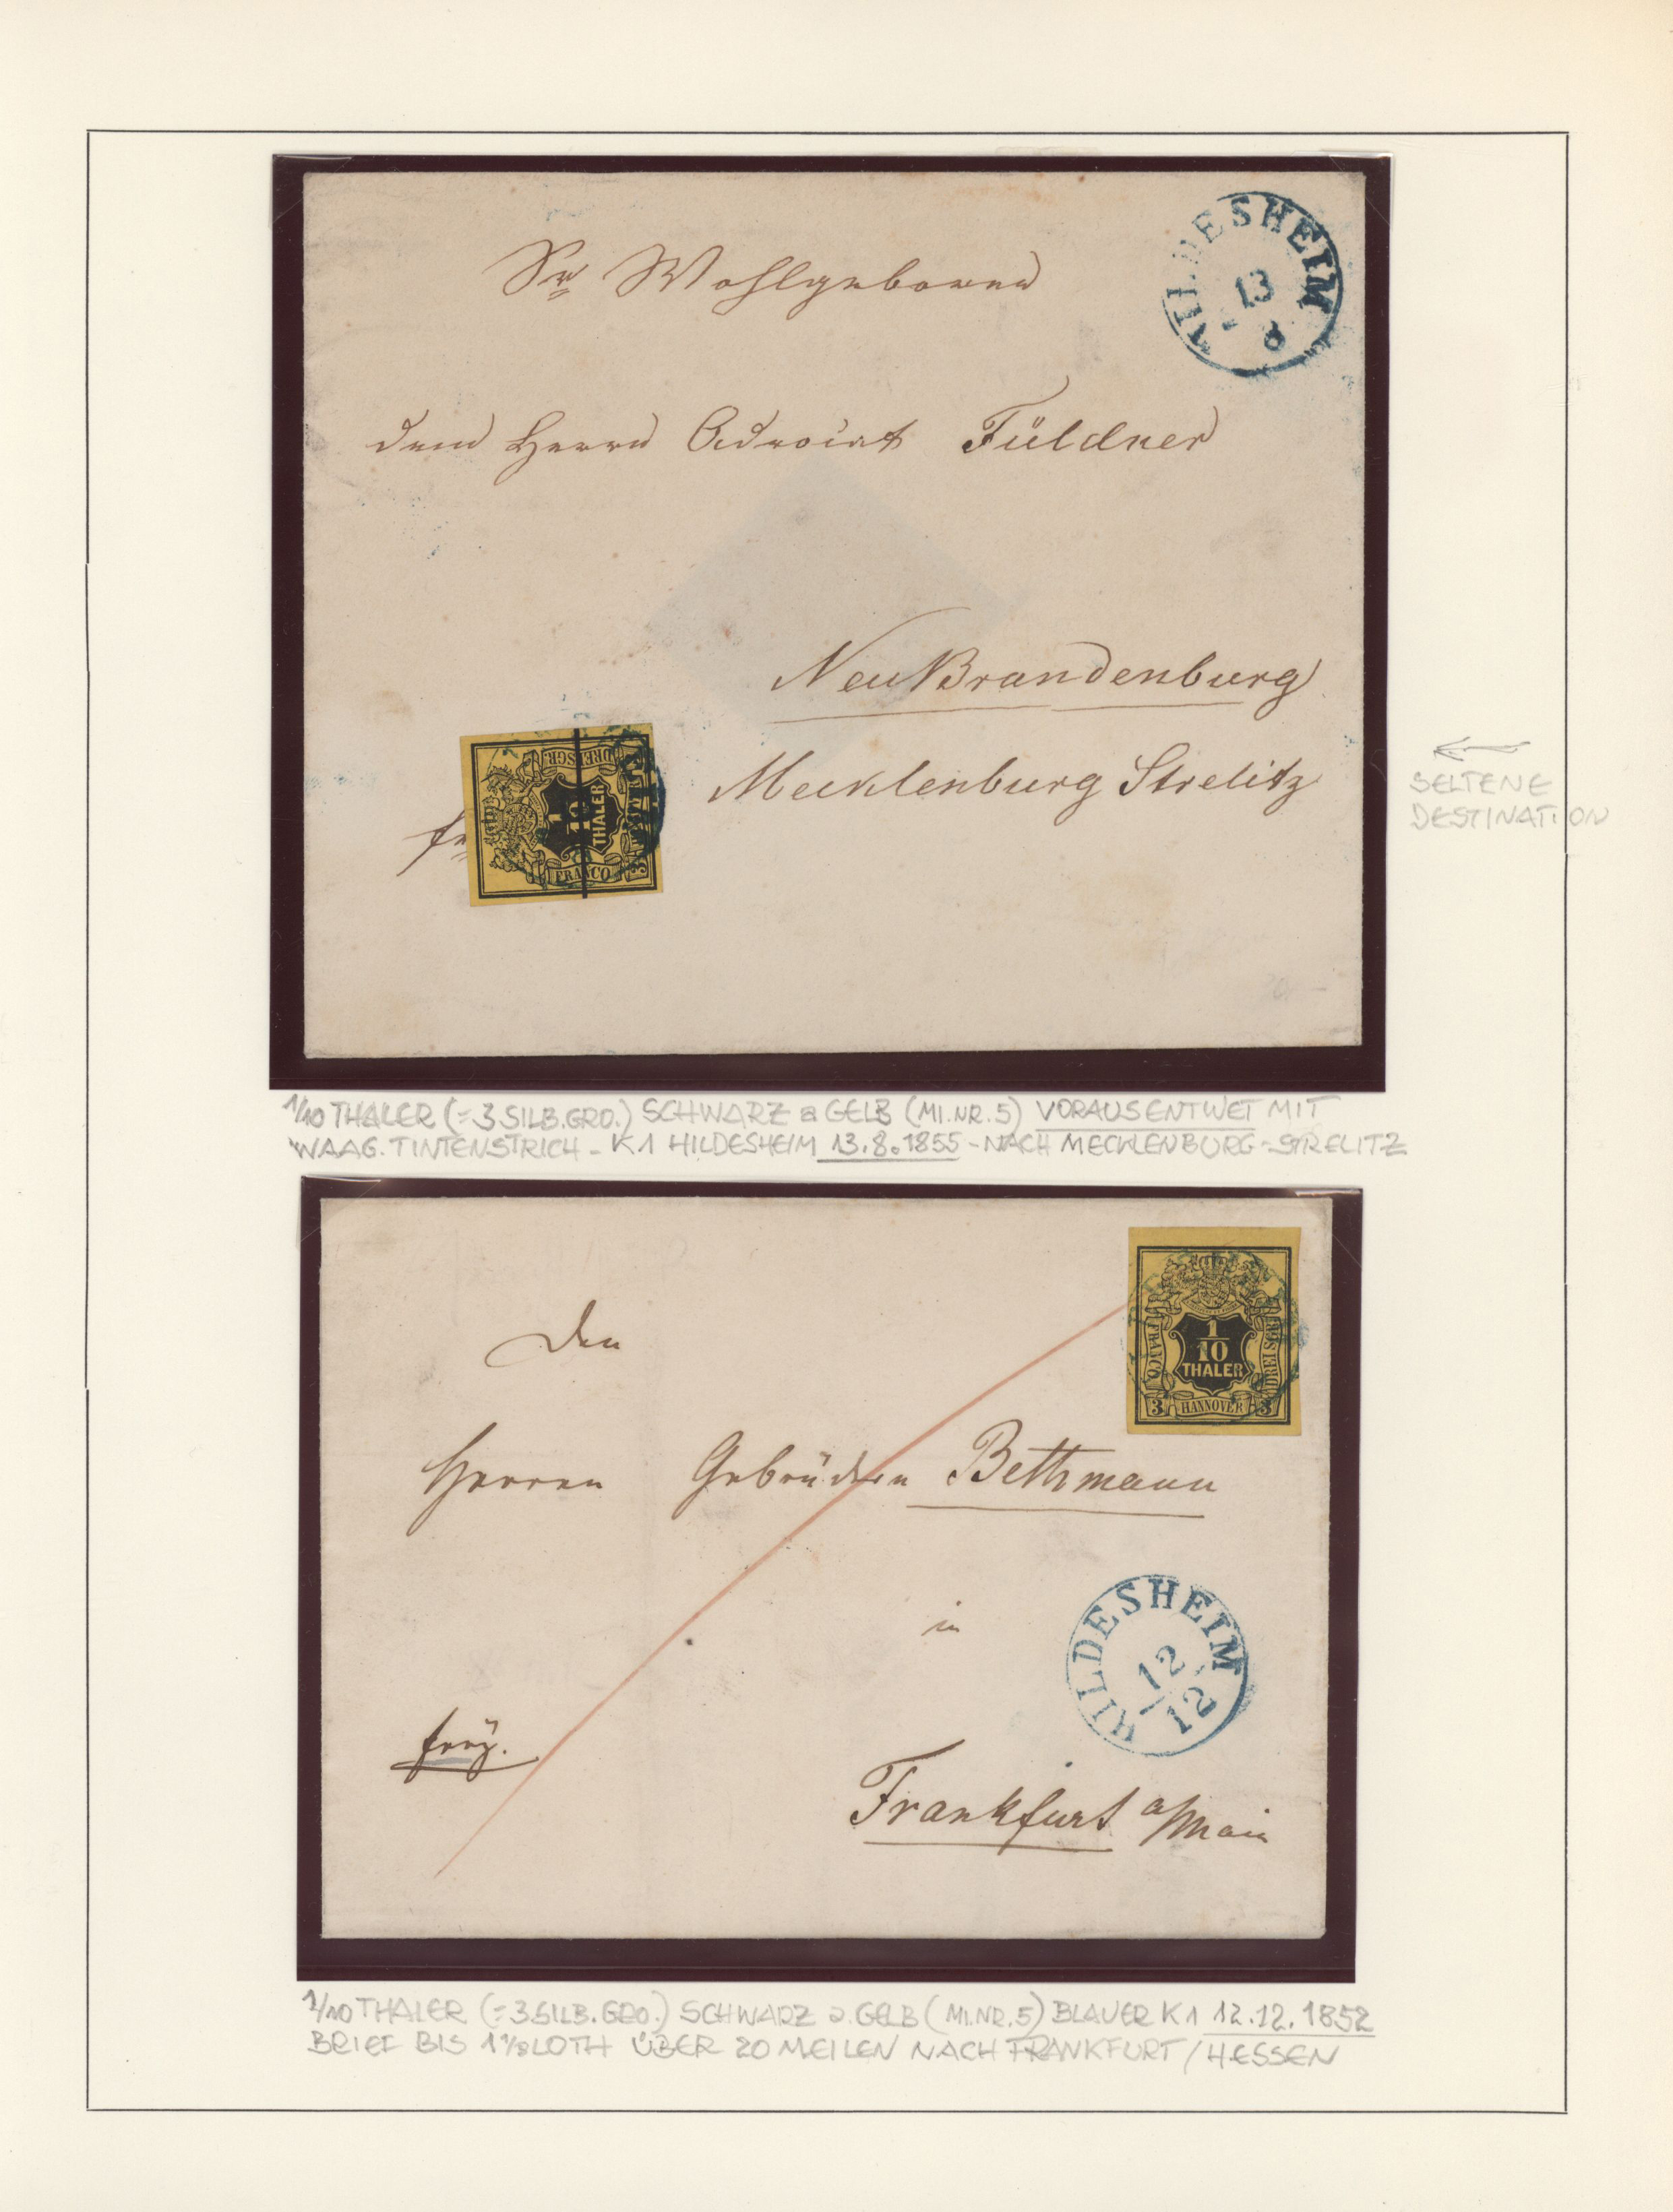 HILDESHEIM
13
8
Sr Wohlgeboren
dem Herrn Advocat Füldner
NeuBrandenburg
Mecklenburg Strelitz
fr
DREI SGR.
1
10
THALER
FRANCO
3
SELTENE
DESTINATION
1/10 THALER (=3 SILB.GRO.) SCHWARZ a GELB (MI.NR.5) VORAUSENTWET MIT
WAAG. TINTENSTRICH - K1 HILDESHEIM 13.8.1855 - NACH MECKLENBURG-STRELITZ
1
10
THALER
FRANCO
DREI SGR.
3 HANNOVER 3
Den
Herren Gebrüdern Bethmann
in
HILDESHEIM
12
12
Frankfurt a/Main
1/10 THALER (=3 SILB.GRO.) SCHWARZ a. GELB (MI.NR.5) BLAUER K1 12.12.1852
BRIEF BIS 1 LOTH ÜBER 20 MEILEN NACH FRANKFURT/HESSEN